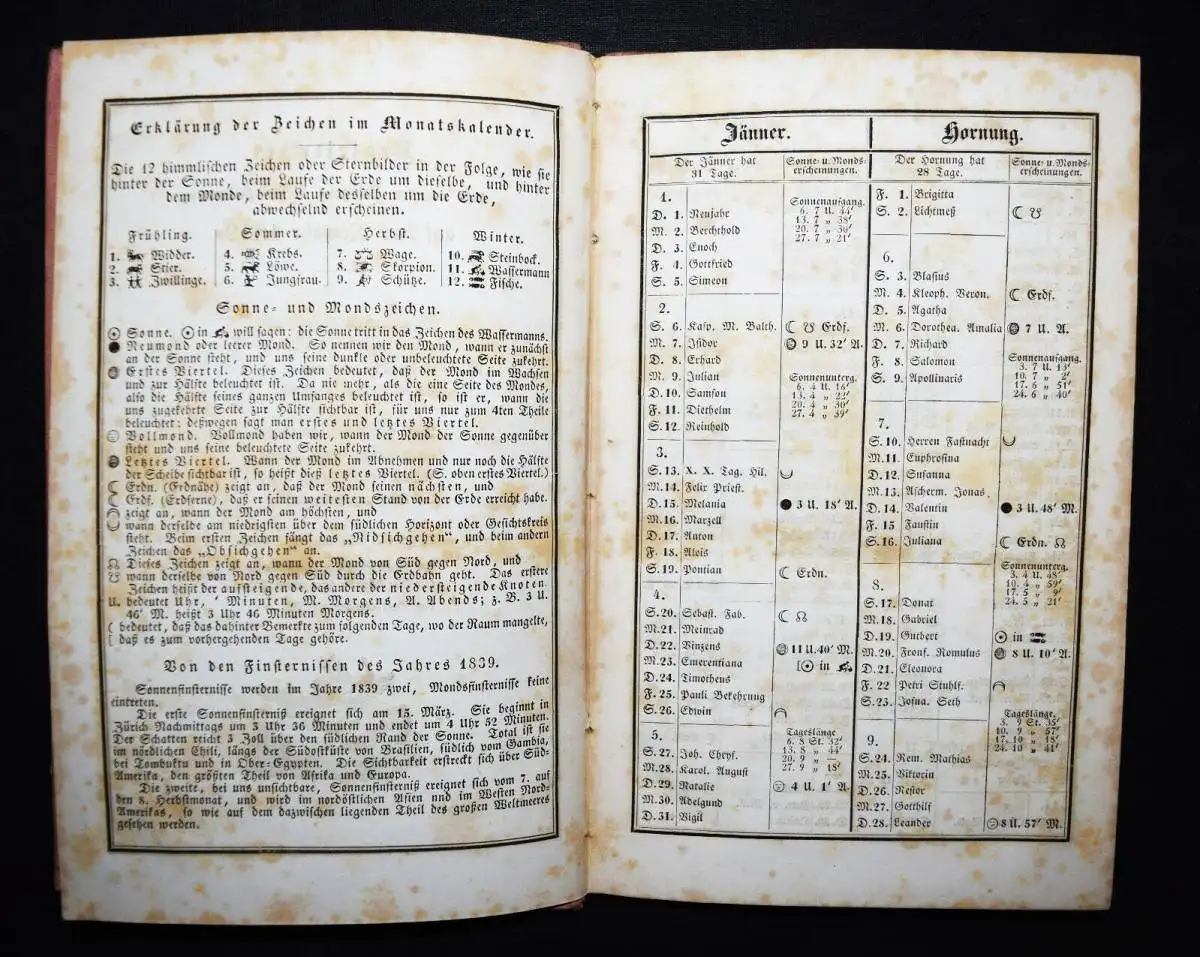 Erklärung der Zeichen im Monatskalender.
Die 12 himmlischen Zeichen oder Sternbilder in der Folge, wie sie
hinter der Sonne, beim Laufe der Erde um dieselbe, und hinter
dem Monde, beim Laufe desselben um die Erde,
abwechselnd erscheinen.
Frühling. Sommer. Herbst. Winter.
1. Widder. 4. Krebs. 7. Wage. 10. Steinbock.
2. Stier. 5. Löwe. 8. Skorpion. 11. Wassermann
3. Zwillinge. 6. Jungfrau. 9. Schütze. 12. Fische.
Sonne- und Mondszeichen.
☉ Sonne. ☉ in ♒ will sagen: die Sonne tritt in das Zeichen des Wassermanns.
● Neumond oder leerer Mond. So nennen wir den Mond, wann er zunächst
an der Sonne steht, und uns seine dunkle oder unbeleuchtete Seite zukehrt.
Erstes Viertel. Dieses Zeichen bedeutet, daß der Mond im Wachsen
und zur Hälfte beleuchtet ist. Da nie mehr, als die eine Seite des Mondes,
also die Hälfte seines ganzen Umfanges beleuchtet ist, so ist er, wann die
uns zugekehrte Seite zur Hälfte sichtbar ist, für uns nur zum 4ten Theile
beleuchtet: deßwegen sagt man erstes und letztes Viertel.
Vollmond. Vollmond haben wir, wann der Mond der Sonne gegenüber
steht und uns seine beleuchtete Seite zukehrt.
Letztes Viertel. Wann der Mond im Abnehmen und nur noch die Hälfte
der Scheibe sichtbar ist, so heißt dieß letztes Viertel. (S. oben erstes Viertel.)
☾ Erdn. (Erdnähe) zeigt an, daß der Mond seinen nächsten, und
☾ Erdf. (Erdferne), daß er seinen weitesten Stand von der Erde erreicht habe.
◠ zeigt an, wann der Mond am höchsten, und
◡ wann derselbe am niedrigsten über dem südlichen Horizont oder Gesichtskreis
steht. Beim ersten Zeichen fängt das „Nidsichgehen“, und beim andern
Zeichen das „Obsichgehen“ an.
☊ Dieses Zeichen zeigt an, wann der Mond von Süd gegen Nord, und
☋ wann derselbe von Nord gegen Süd durch die Erdbahn geht. Das erstere
Zeichen heißt der aufsteigende, das andere der niedersteigende Knoten.
U. bedeutet Uhr, ′ Minuten, M. Morgens, A. Abends; z. B. 3 U.
46′ M. heißt 3 Uhr 46 Minuten Morgens.
( bedeutet, daß das dahinter Bemerkte zum folgenden Tage, wo der Raum mangelte,
[ daß es zum vorhergehenden Tage gehöre.
Von den Finsternissen des Jahres 1839.
Sonnenfinsternisse werden im Jahre 1839 zwei, Mondsfinsternisse keine
eintreten.
Die erste Sonnenfinsterniß ereignet sich am 15. März. Sie beginnt in
Zürich Nachmittags um 3 Uhr 36 Minuten und endet um 4 Uhr 52 Minuten.
Der Schatten reicht 3 Zoll über den südlichen Rand der Sonne. Total ist sie
im nördlichen Chili, längs der Südostküste von Brasilien, südlich vom Gambia,
bei Tombuktu und in Ober-Egypten. Die Sichtbarkeit erstreckt sich über Süd-
Amerika, den größten Theil von Afrika und Europa.
Die zweite, bei uns unsichtbare, Sonnenfinsterniß ereignet sich vom 7. auf
den 8. Herbstmonat, und wird im nordöstlichen Asien und im Westen Nord-
Amerikas, so wie auf dem dazwischen liegenden Theil des großen Weltmeeres
gesehen werden.
Jänner.
Der Jänner hat
31 Tage.
Sonne- u. Monds-
erscheinungen.
1.
D. 1. Neujahr
M. 2. Berchthold
D. 3. Enoch
F. 4. Gottfried
S. 5. Simeon
Sonnenaufgang.
6. 7 U. 44′
13. 7 „ 38′
20. 7 „ 30′
27. 7 „ 21′
2.
S. 6. Kasp. M. Balth. ☾ ☋ Erdf.
M. 7. Isidor 9 U. 32′ A.
D. 8. Erhard
M. 9. Julian
D. 10. Samson
F. 11. Diethelm
S. 12. Reinhold
Sonnenunterg.
6. 4 U. 16′
13. 4 „ 22′
20. 4 „ 30′
27. 4 „ 39′
3.
S. 13. X. X. Tag. Hil. ◡
M. 14. Felix Priest.
D. 15. Melania ● 3 U. 18′ A.
M. 16. Marzell
D. 17. Anton
F. 18. Alois
S. 19. Pontian ☾ Erdn.
4.
S. 20. Sebast. Fab. ☾ ☊
M. 21. Meinrad
D. 22. Vinzens 11 U. 40′ M.
M. 23. Emerentiana [☉ in ♒
D. 24. Timotheus
F. 25. Pauli Bekehrung
S. 26. Edwin ◠
5.
S. 27. Joh. Chrys.
M. 28. Karol. August
D. 29. Natalie 4 U. 1′ A.
M. 30. Adelgund
D. 31. Vigil
Tageslänge
6. 8 St. 32′
13. 8 „ 44′
20. 9 „ —
27. 9 „ 18′
Hornung.
Der Hornung hat
28 Tage.
Sonne- u. Monds-
erscheinungen.
F. 1. Brigitta
S. 2. Lichtmeß ☾ ☋
6.
S. 3. Blasius
M. 4. Kleoph. Veron. ☾ Erdf.
D. 5. Agatha
M. 6. Dorothea. Amalia 7 U. A.
D. 7. Richard
F. 8. Salomon
S. 9. Apollinaris
Sonnenaufgang.
3. 7 U. 13′
10. 7 „ 2′
17. 6 „ 51′
24. 6 „ 40′
7.
S. 10. Herren Fastnacht ◡
M. 11. Euphrosina
D. 12. Susanna
M. 13. Ascherm. Jonas.
D. 14. Valentin ● 3 U. 48′ M.
F. 15 Faustin
S. 16. Juliana ☾ Erdn. ☊
Sonnenunterg.
3. 4 U. 48′
10. 4 „ 59′
17. 5 „ 9′
24. 5 „ 21′
8.
S. 17. Donat
M. 18. Gabriel
D. 19. Gutbert ☉ in ♓
M. 20. Fronf. Romulus 8 U. 10′ A.
D. 21. Eleonora
F. 22 Petri Stuhlf. ◠
S. 23. Josua. Seth
Tageslänge
3. 9 St. 35′
10. 9 „ 57′
17. 10 „ 18′
24. 10 „ 41′
9.
S. 24. Rem. Mathias
M. 25. Viktorin
D. 26. Nestor
M. 27. Gotthilf
D. 28. Leander 8 U. 57′ M.